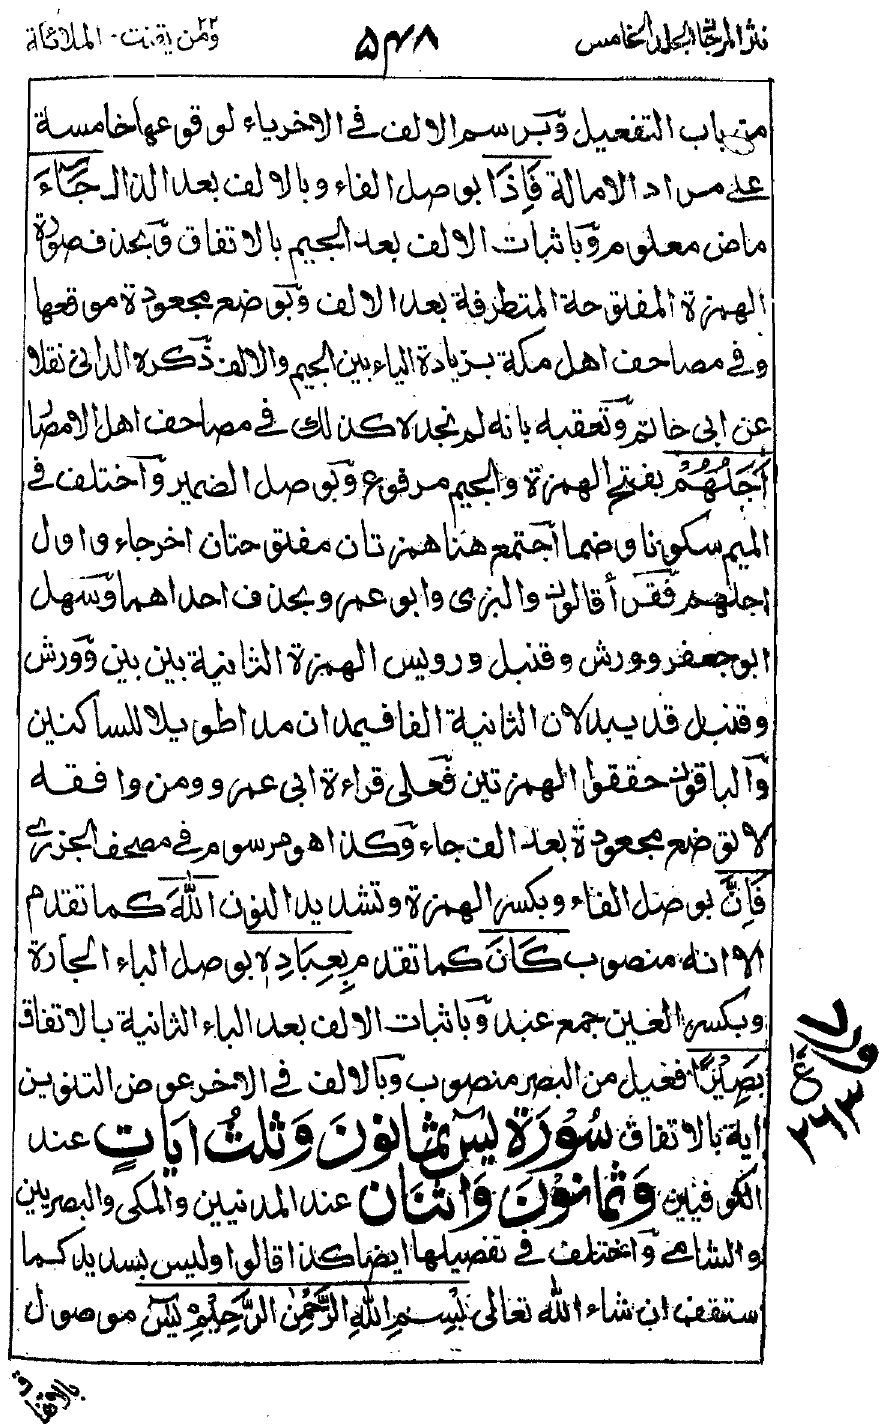 نثر المرجان المجلد الخامس ٥٣٨ ومن يقنت ٢٢ - الملائكة
من باب التفعيل وبرسم الالف في الاخر ياء لوقوعها خامسة
على مراد الامالة فَاِذَا بوصل الفاء وبالالف بعد الذال جَآءَ
ماض معلوم وباثبات الالف بعد الجيم بالاتفاق وبحذف صورة
الهمزة المفتوحة المتطرفة بعد الالف وبوضع مجعودة موقعها
وفي مصاحف اهل مكة بزيادة الياء بين الجيم والالف ذكره الداني نقلا
عن ابي حاتم وتعقبه بانه لم نجده كذلك في مصاحف اهل الامصار
اَجَلُهُمْ بفتح الهمزة والجيم مرفوع وبوصل الضمير واختلف في
الميم سكونا وضما اجتمع هنا همزتان مفتوحتان اخر جاء واول
اجلهم فقرأ قالون والبزى وابو عمرو بحذف احداهما وسهل
ابو جعفر وورش وقنبل ورويس الهمزة الثانية بين بين وورش
وقنبل قد يبدلان الثانية الفا فيمدان مدا طويلا للساكنين
والباقون حققوا الهمزتين فعلى قراءة ابى عمرو ومن وافقه
لا توضع مجعودة بعد الف جاء وكذا هو مرسوم في مصحف الجزري
فَاِنَّ بوصل الفاء وبكسر الهمزة وتشديد النون اللهَ كما تقدم
الا انه منصوب كَانَ كما تقدم بِعِبَادِهٖ بوصل الباء الجارة
وبكسر العين جمع عبد وباثبات الالف بعد الباء الثانية بالاتفاق
بَصِيْرًا فعيل من البصر منصوب وبالالف في الاخر عوض التنوين
اية بالاتفاق سُوْرَةُ يٰسٓ ثمَانُوْنَ وَثَلٰثُ ايَاتٍ عند
الكوفيين وَثَمَانُوْنَ وَاثْنَان عند المدنيين والمكى والبصريين
والشامي واختلف في تفصيلها ايضا كذا قالوا وليس بسديد كما
ستقف ان شاء الله تعالى بِسْمِ اللهِ الرَّحْمٰنِ الرَّحِيْمِ يٰسٓ موصول
بالاتفاق